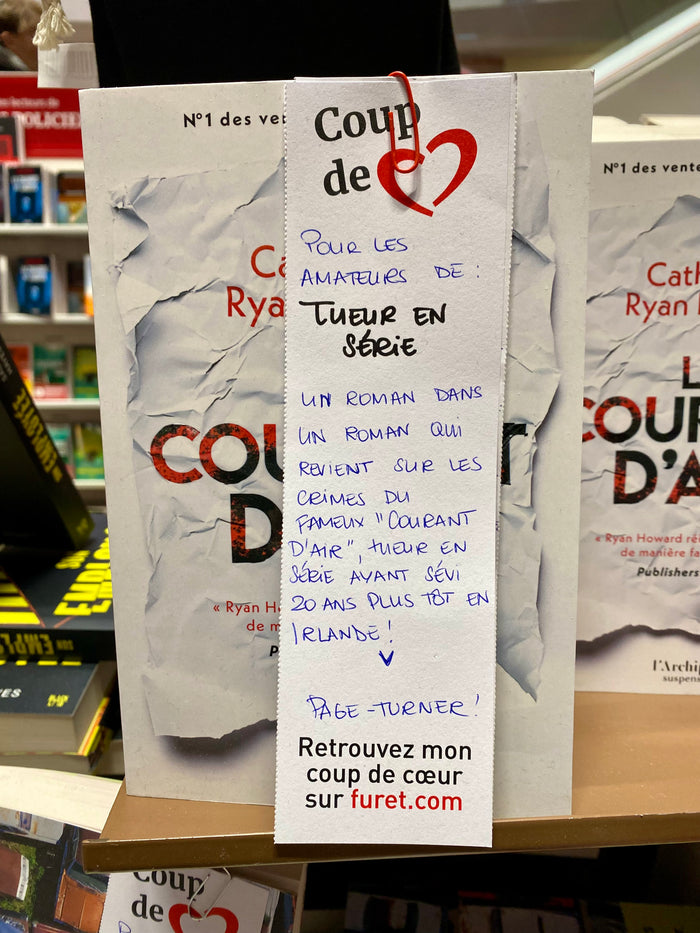 N°1 des
Coup
de
POUR LES
AMATEURS DE :
TUEUR EN
SÉRIE
UN ROMAN DANS
UN ROMAN QUI
REVIENT SUR LES
CRIMES DU
FAMEUX "COURANT
D'AIR", TUEUR EN
SÉRIE AYANT SÉVI
20 ANS PLUS TÔT EN
IRLANDE !
PAGE-TURNER !
Retrouvez mon
coup de cœur
sur furet.com
« Ryan
de
N°1 des vente
Ryan
COUR
D'A
« Ryan Howard
de manière
Publishers
l'Archip
suspens
Coup
de